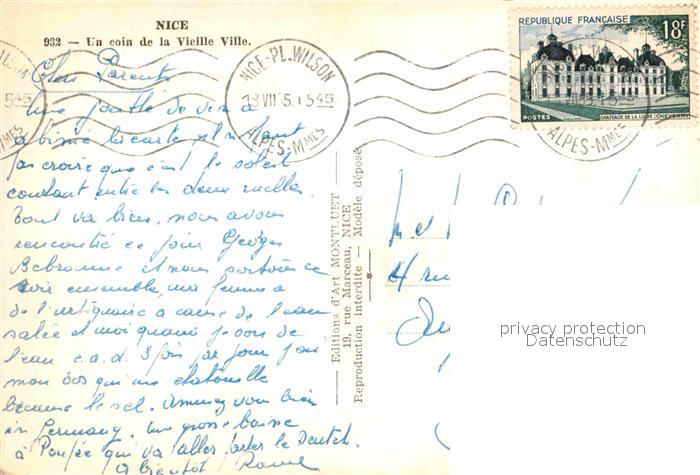 NICE
932 — Un coin de la Vieille Ville.
REPUBLIQUE FRANÇAISE
18F
POSTES
CHATEAUX DE LA LOIRE (CHEVERNY)
NICE-PL. WILSON
15 45
ALPES-MMES
Chers Parents
Une goutte de vin a
abimé la carte il ne faut
pas croire que c'est le soleil
coulant entre les deux ruelles.
Tout va bien, nous avons
rencontré ce jour Georges
et nous sortons ce
soir ensemble, ma femme a
de l'urticaire a cause de l'eau
salée et moi quand je sors de
l'eau c.a.d. 3 fois par jour j'ai
mon dos qui me chatouille
comme le sel. Amusez vous bien
in Germany. Une grosse baise
à Poupée qui va aller parler le Deutch.
A bientôt
Editions d'Art MONTLUET
19, rue Marceau, NICE
Reproduction interdite — Modèle déposé
4 rue
privacy protection
Datenschutz